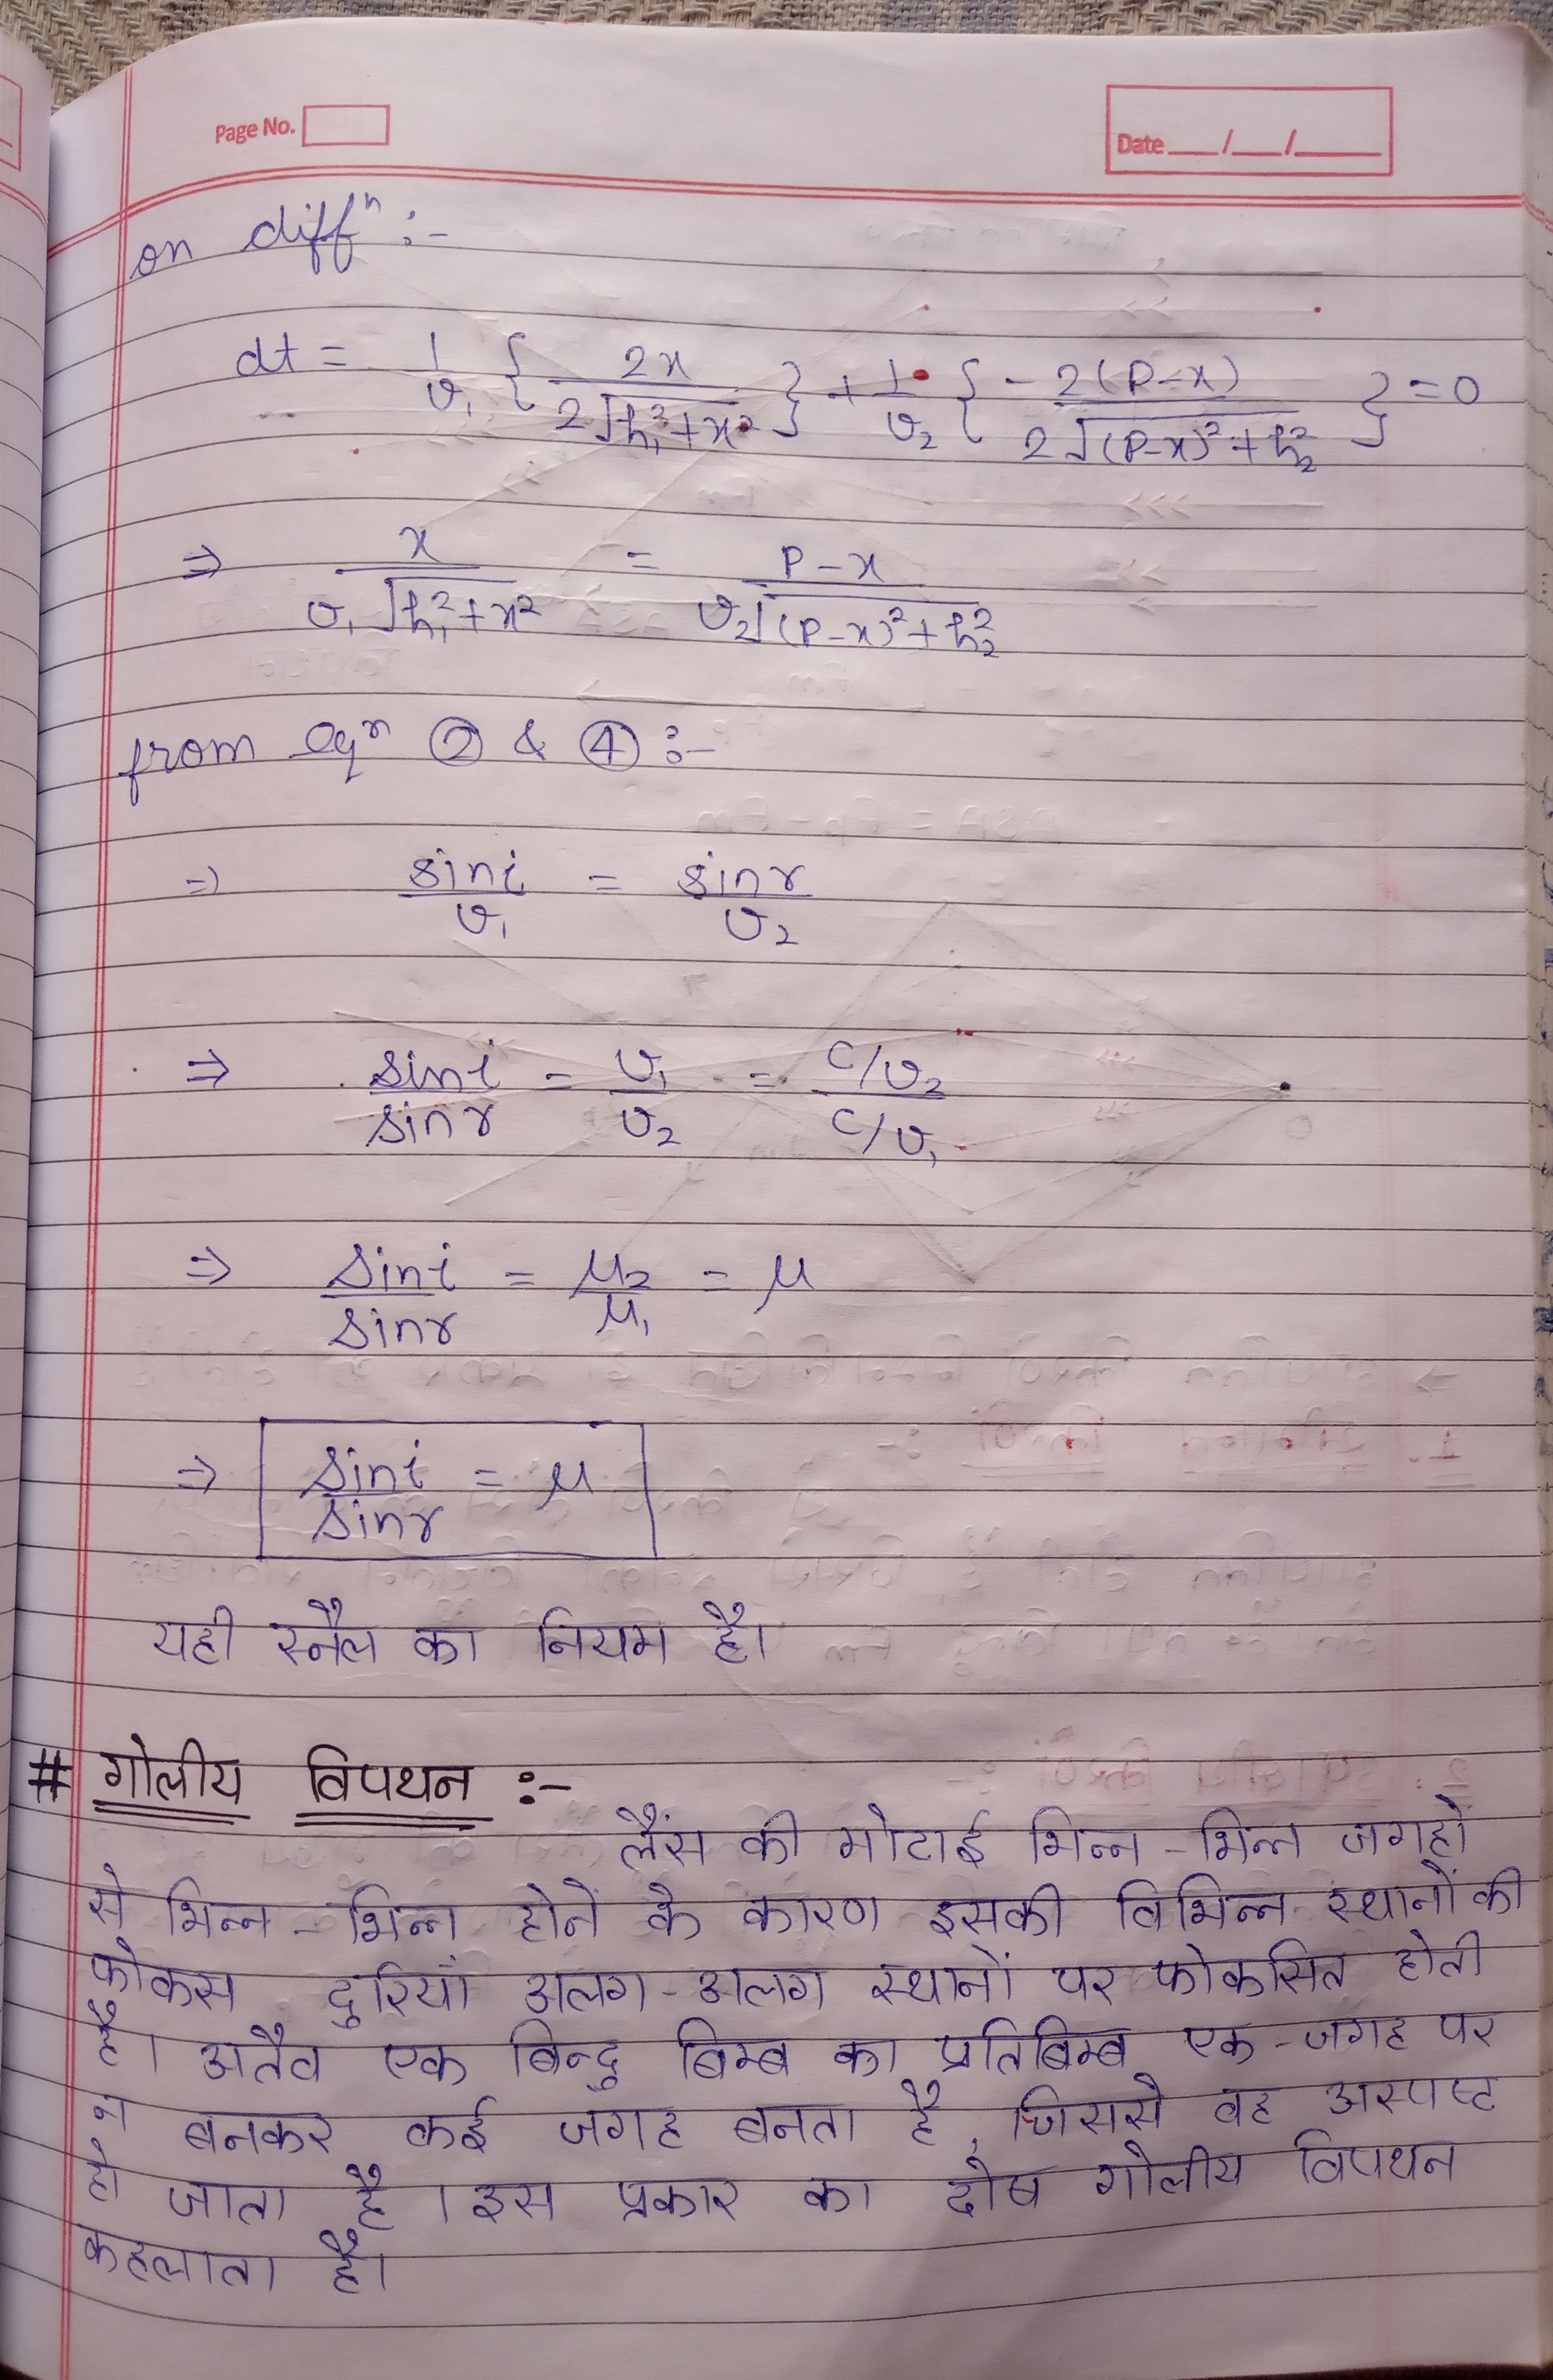 Page No.
Date __/__/____
on diffⁿ :-
dt = 1/v₁ { 2x / 2√(h₁²+x²) } + 1/v₂ { - 2(P-x) / 2√((P-x)²+h₂²) } = 0
⇒ x / v₁√(h₁²+x²) = P-x / v₂√((P-x)²+h₂²)
from eqⁿ ② & ④ :-
⇒ sini/v₁ = sinr/v₂
⇒ sini/sinr = v₁/v₂ = (C/v₂)/(C/v₁)
⇒ sini/sinr = μ₂/μ₁ = μ
⇒ sini/sinr = μ
यही स्नैल का नियम है।
# गोलीय विपथन :-
लैंस की मोटाई भिन्न-भिन्न जगहो
से भिन्न-भिन्न होने के कारण इसकी विभिन्न स्थानों की
फोकस दुरियां अलग-अलग स्थानों पर फोकसित होती
है। अतैव एक बिन्दु बिम्ब का प्रतिबिम्ब एक-जगह पर
न बनकर कई जगह बनता है, जिससे वह अस्पष्ट
हो जाता है। इस प्रकार का दोष गोलीय विपथन
कहलाता है।